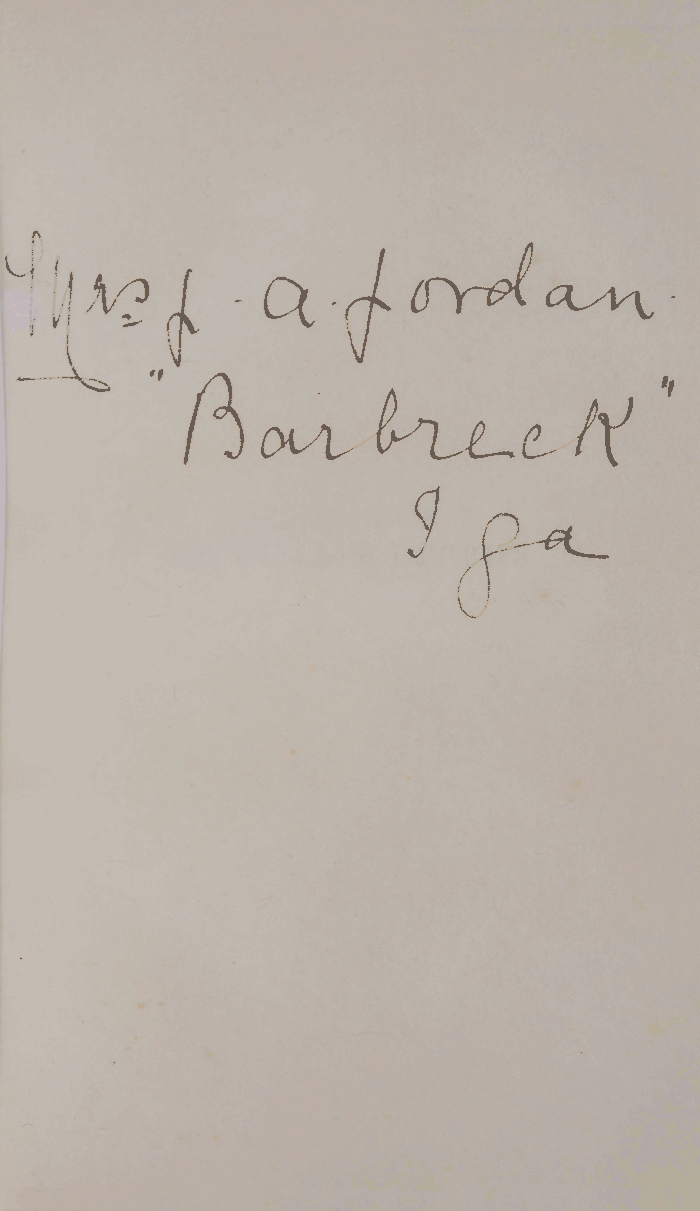 Mrs J. A. Jordan.
"Barbreck"
Iga